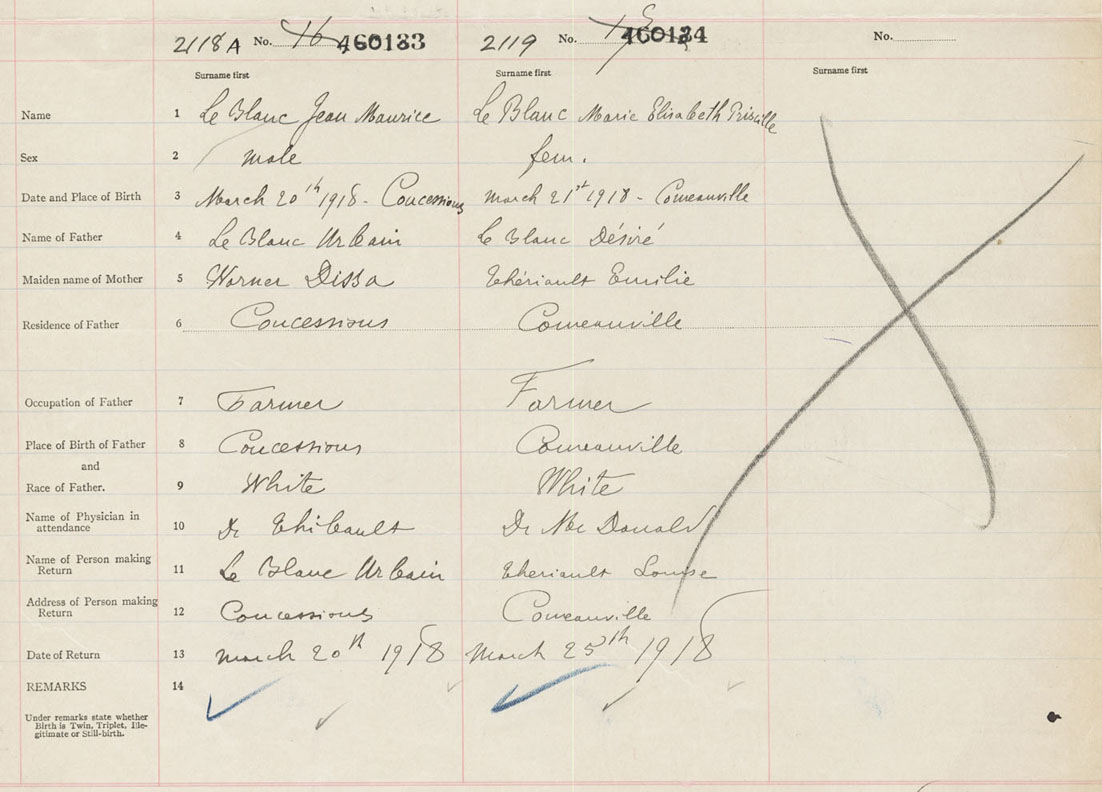 2118 A No. 16 460133 2119 No. 460134 No.
Surname first Surname first Surname first
Name 1 Le Blanc Jean Maurice Le Blanc Marie Elisabeth Priscille
Sex 2 male fem.
Date and Place of Birth 3 March 20th 1918 - Concessions March 21st 1918 - Comeauville
Name of Father 4 Le Blanc Urbain Le Blanc Désiré
Maiden name of Mother 5 Warner Dissa Thériault Emilie
Residence of Father 6 Concessions Comeauville
Occupation of Father 7 Farmer Farmer
Place of Birth of Father 8 Concessions Comeauville
and
Race of Father. 9 White White
Name of Physician in
attendance 10 Dr Thibault Dr Mc Donald
Name of Person making
Return 11 Le Blanc Urbain Theriault Louise
Address of Person making
Return 12 Concessions Comeauville
Date of Return 13 march 20th 1918 March 25th 1918
REMARKS 14
Under remarks state whether
Birth is Twin, Triplet, Ille-
gitimate or Still-birth.